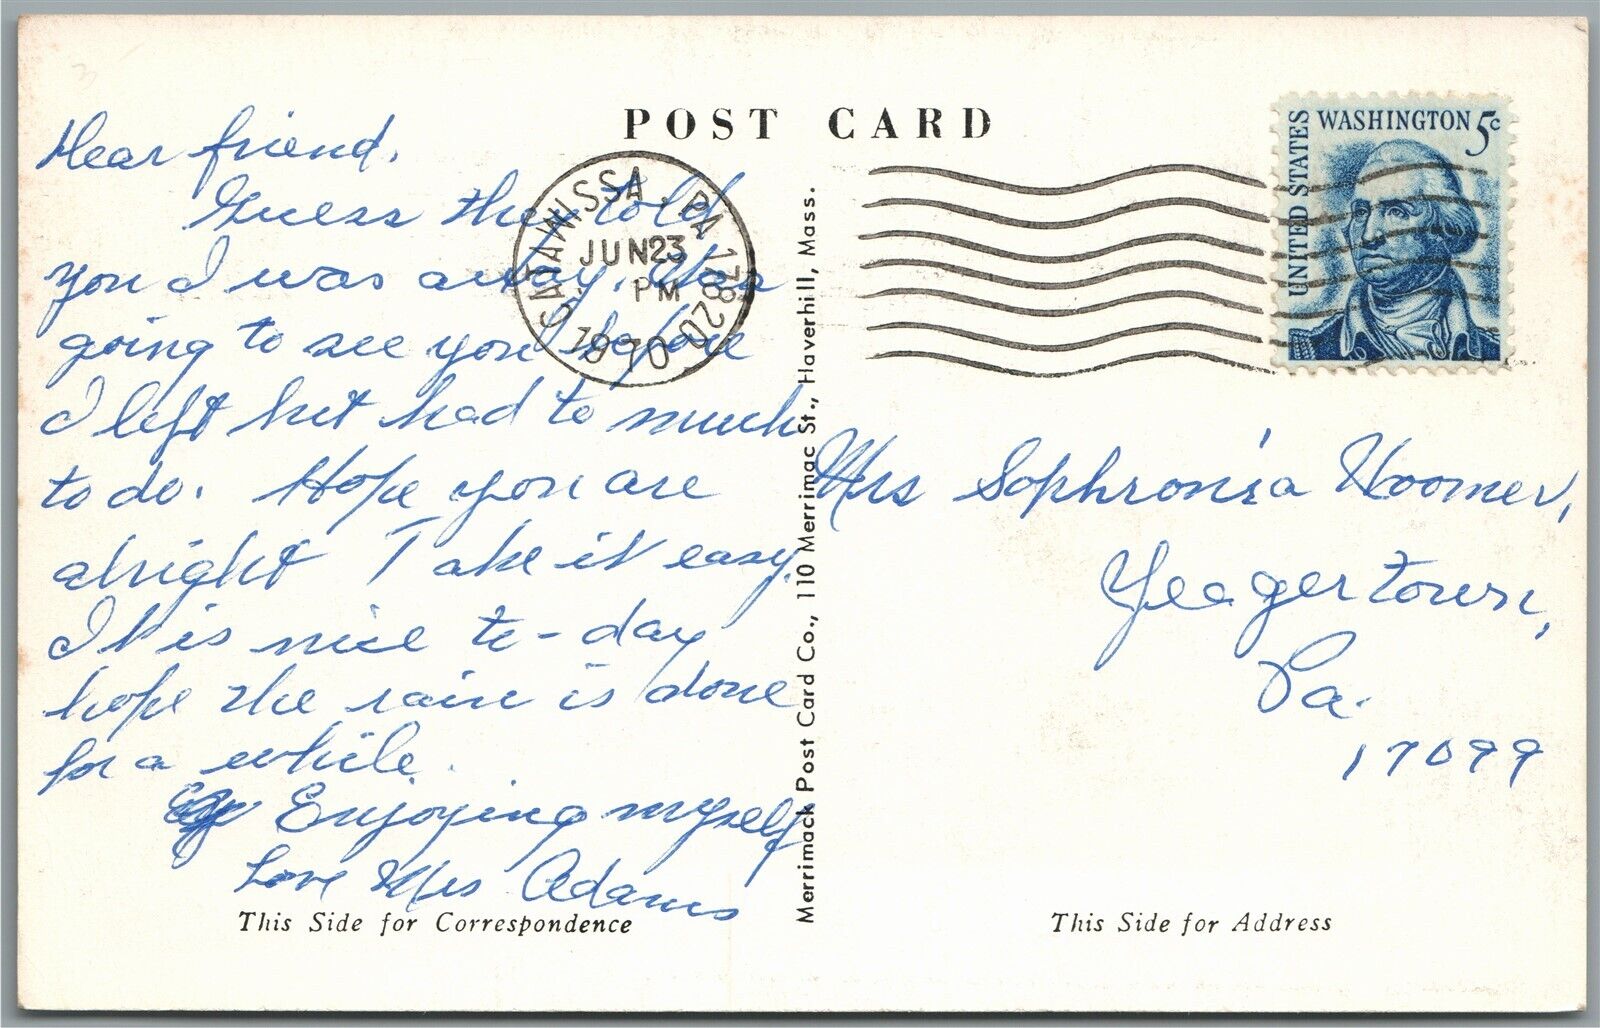 POST CARD
Dear friend,
Guess they told
you I was away. Was
going to see you before
I left but had to much
to do. Hope you are
alright Take it easy.
It is nice to-day
hope the rain is done
for a while.
Enjoying myself
Love Mrs Adams
This Side for Correspondence
CATAWISSA, PA 17820
JUN 23
PM
1970
Merrimack Post Card Co., 110 Merrimac St., Haverhill, Mass.
UNITED STATES
WASHINGTON 5c
Mrs Sophronia Hoomer,
Yeagertown,
Pa.
17099
This Side for Address